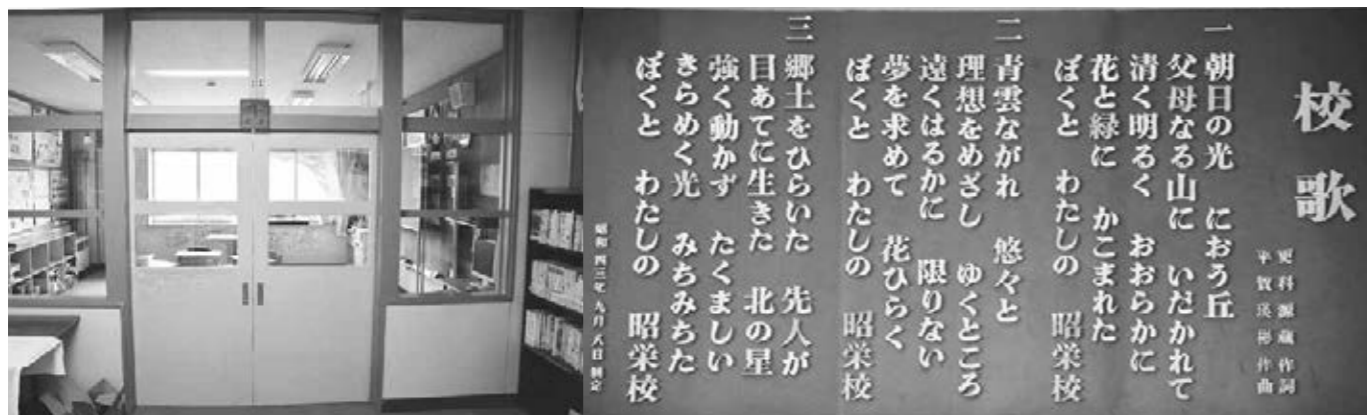 校歌
更科源蔵 作詞
平賀瑛彬 作曲
一 朝日の光 におう丘
父母なる山に いだかれて
清く明るく おおらかに
花と緑に かこまれた
ぼくと わたしの 昭栄校
二 青雲ながれ 悠々と
理想をめざし ゆくところ
遠くはるかに 限りない
夢を求めて 花ひらく
ぼくと わたしの 昭栄校
三 郷土をひらいた 先人が
目あてに生きた 北の星
強く動かず たくましい
きらめく光 みちみちた
ぼくと わたしの 昭栄校
昭和四三年九月八日制定